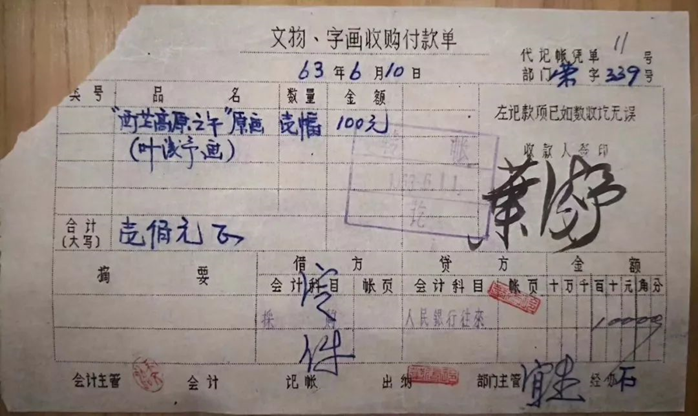 文物、字画收购付款单
代记帐凭单 11 号
63年6月10日
部门荣字339号
类号 品名 数量 金额
左记款项已如数收讫无误
"西芒高原之午"原画 壱幅 100元
(叶浅予画)
收款人签印
叶浅予
讫
合计 壱佰元正
(大写)
摘要 借方 贷方 金额
会计科目 帐页 会计科目 帐页 十万千百十元角分
人民银行往来 10000
会计主管 会计 记帐 出纳 部门主管 经办 石